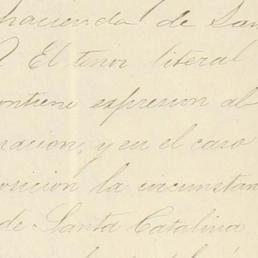 hacienda de San
? El tenor literal
ontiene expresion al
nacion, y en el caso
osicion la circunstan
de Santa Catalina